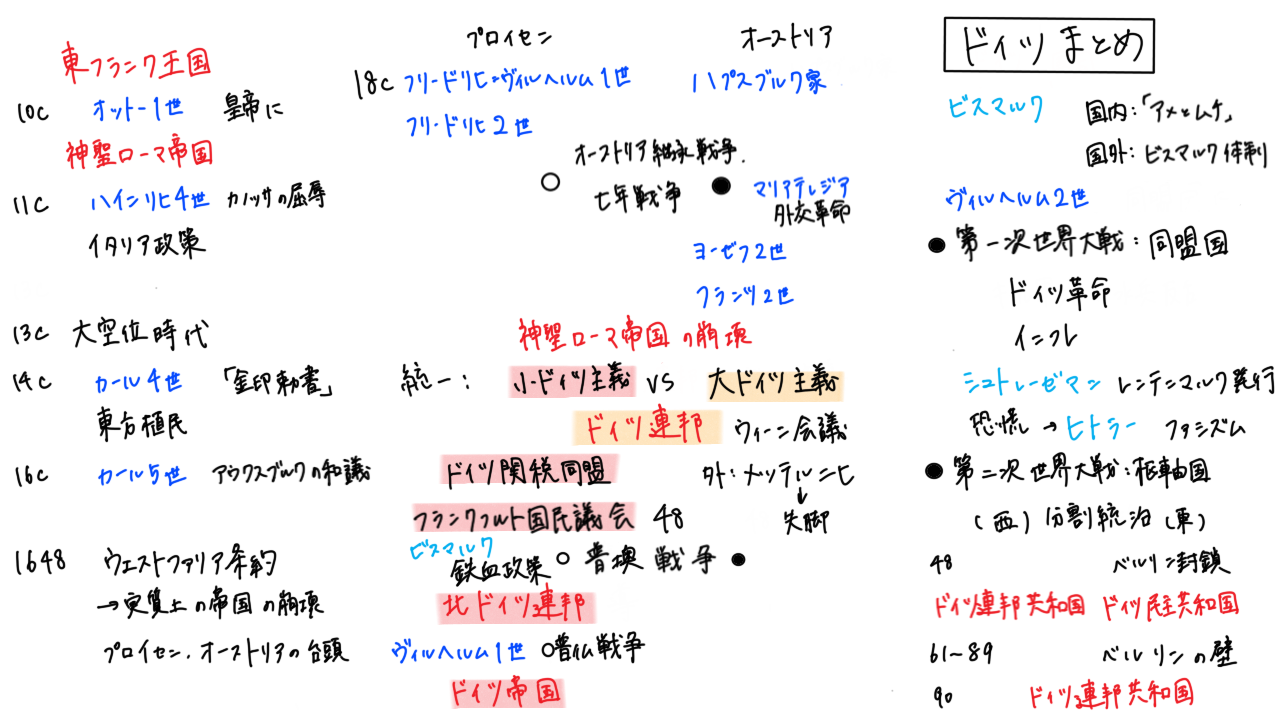 ドイツ まとめ
東フランク王国
10c オットー1世 皇帝に
神聖ローマ帝国
11c ハインリヒ4世 カノッサの屈辱
イタリア政策
13c 大空位時代
14c カール4世 「金印勅書」
東方植民
16c カール5世 アウクスブルクの和議
1648 ウェストファリア条約
→実質上の帝国の崩壊
プロイセン・オーストリアの台頭
プロイセン オーストリア
18c フリードリヒ=ヴィルヘルム1世 ハプスブルク家
フリードリヒ2世
オーストリア継承戦争
○ 七年戦争 ● マリアテレジア
外交革命
ヨーゼフ2世
フランツ2世
神聖ローマ帝国の崩壊
統一: 小ドイツ主義 vs 大ドイツ主義
ドイツ連邦 ウィーン会議
ドイツ関税同盟 外:メッテルニヒ
↓
フランクフルト国民議会 48 失脚
ビスマルク
鉄血政策 ○ 普墺戦争 ●
北ドイツ連邦
ヴィルヘルム1世 ○普仏戦争
ドイツ帝国
ビスマルク 国内:「アメとムチ」
国外:ビスマルク体制
ヴィルヘルム2世
● 第一次世界大戦:同盟国
ドイツ革命
インフレ
シュトレーゼマン レンテンマルク発行
恐慌 → ヒトラー ファシズム
● 第二次世界大戦:枢軸国
(西)分割統治(東)
48 ベルリン封鎖
ドイツ連邦共和国 ドイツ民主共和国
61~89 ベルリンの壁
90 ドイツ連邦共和国